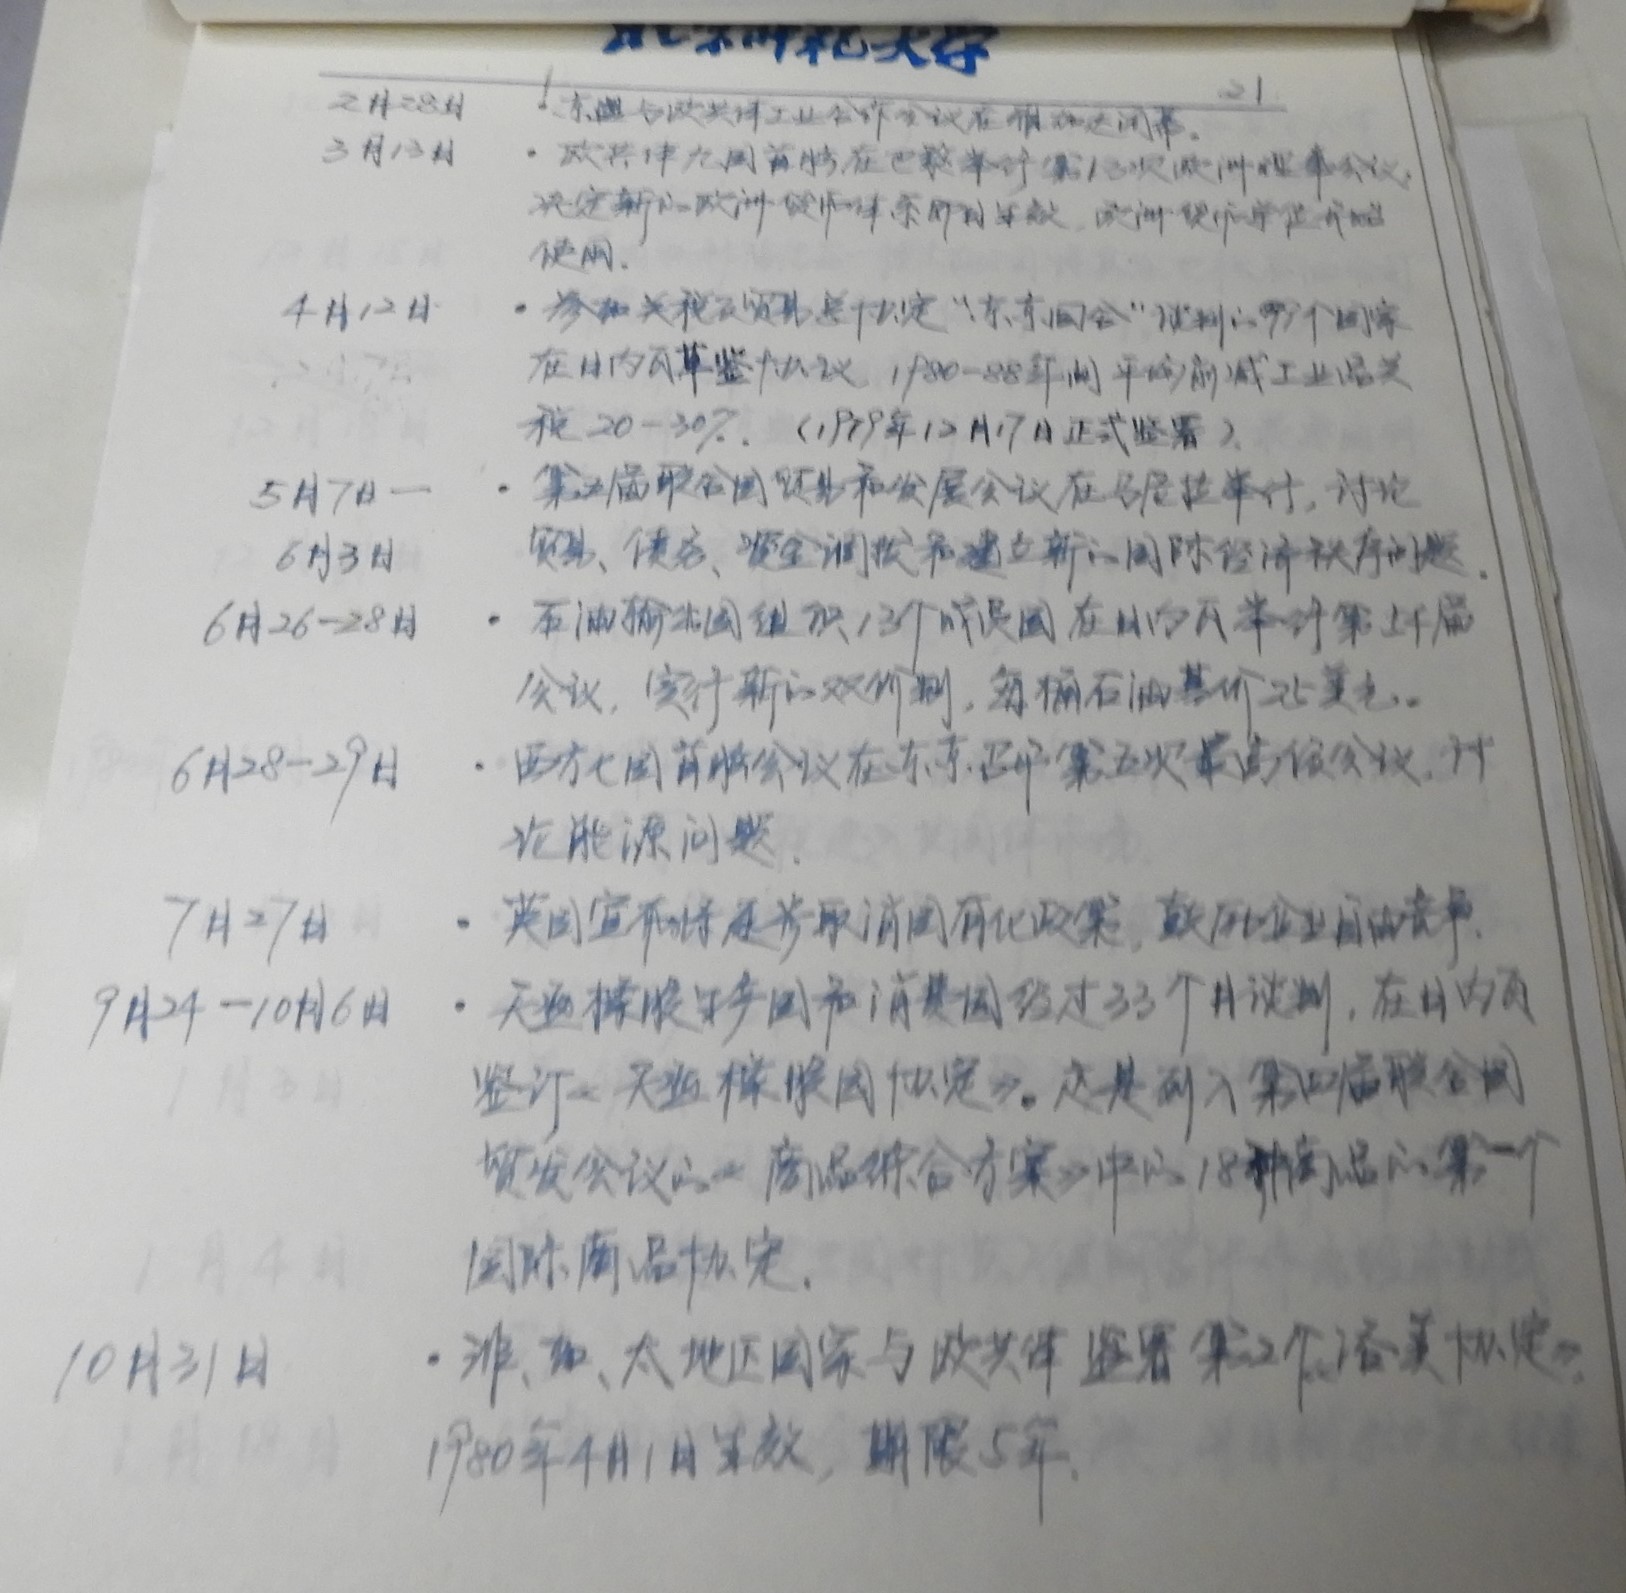 北京师范大学
21
2月28日 · 东盟与欧共体工业合作会议在雅加达闭幕。
3月13日 · 欧共体九国首脑在巴黎举行第13次欧洲理事会议,
决定新的欧洲货币体系即日生效,欧洲货币单位开始
使用.
4月12日 · 参加关税及贸易总协定“东京回合”谈判的99个国家
在日内瓦草签协议 1980-88年间平均削减工业品关
税20-30%. (1979年12月17日正式签署).
5月7日— · 第五届联合国贸易和发展会议在马尼拉举行,讨论
6月3日 贸易、债务、资金调拨和建立新的国际经济秩序问题.
6月26-28日 · 石油输出国组织13个成员国在日内瓦举行第五十届
会议,实行新的双价制,每桶石油基价25美元。
6月28-29日 · 西方七国首脑会议在东京召开第五次最高级会议,讨
论能源问题.
7月27日 · 英国宣布将逐步取消国有化政策,鼓励企业自由竞争.
9月24-10月6日 · 天然橡胶生产国和消费国经过33个月谈判,在日内瓦
签订《天然橡胶国协定》。这是列入第四届联合国
贸发会议的《商品综合方案》中的18种商品的第一个
国际商品协定.
10月31日 · 非、加、太地区国家与欧共体签署第2个《洛美协定》,
1980年4月1日生效,期限5年.